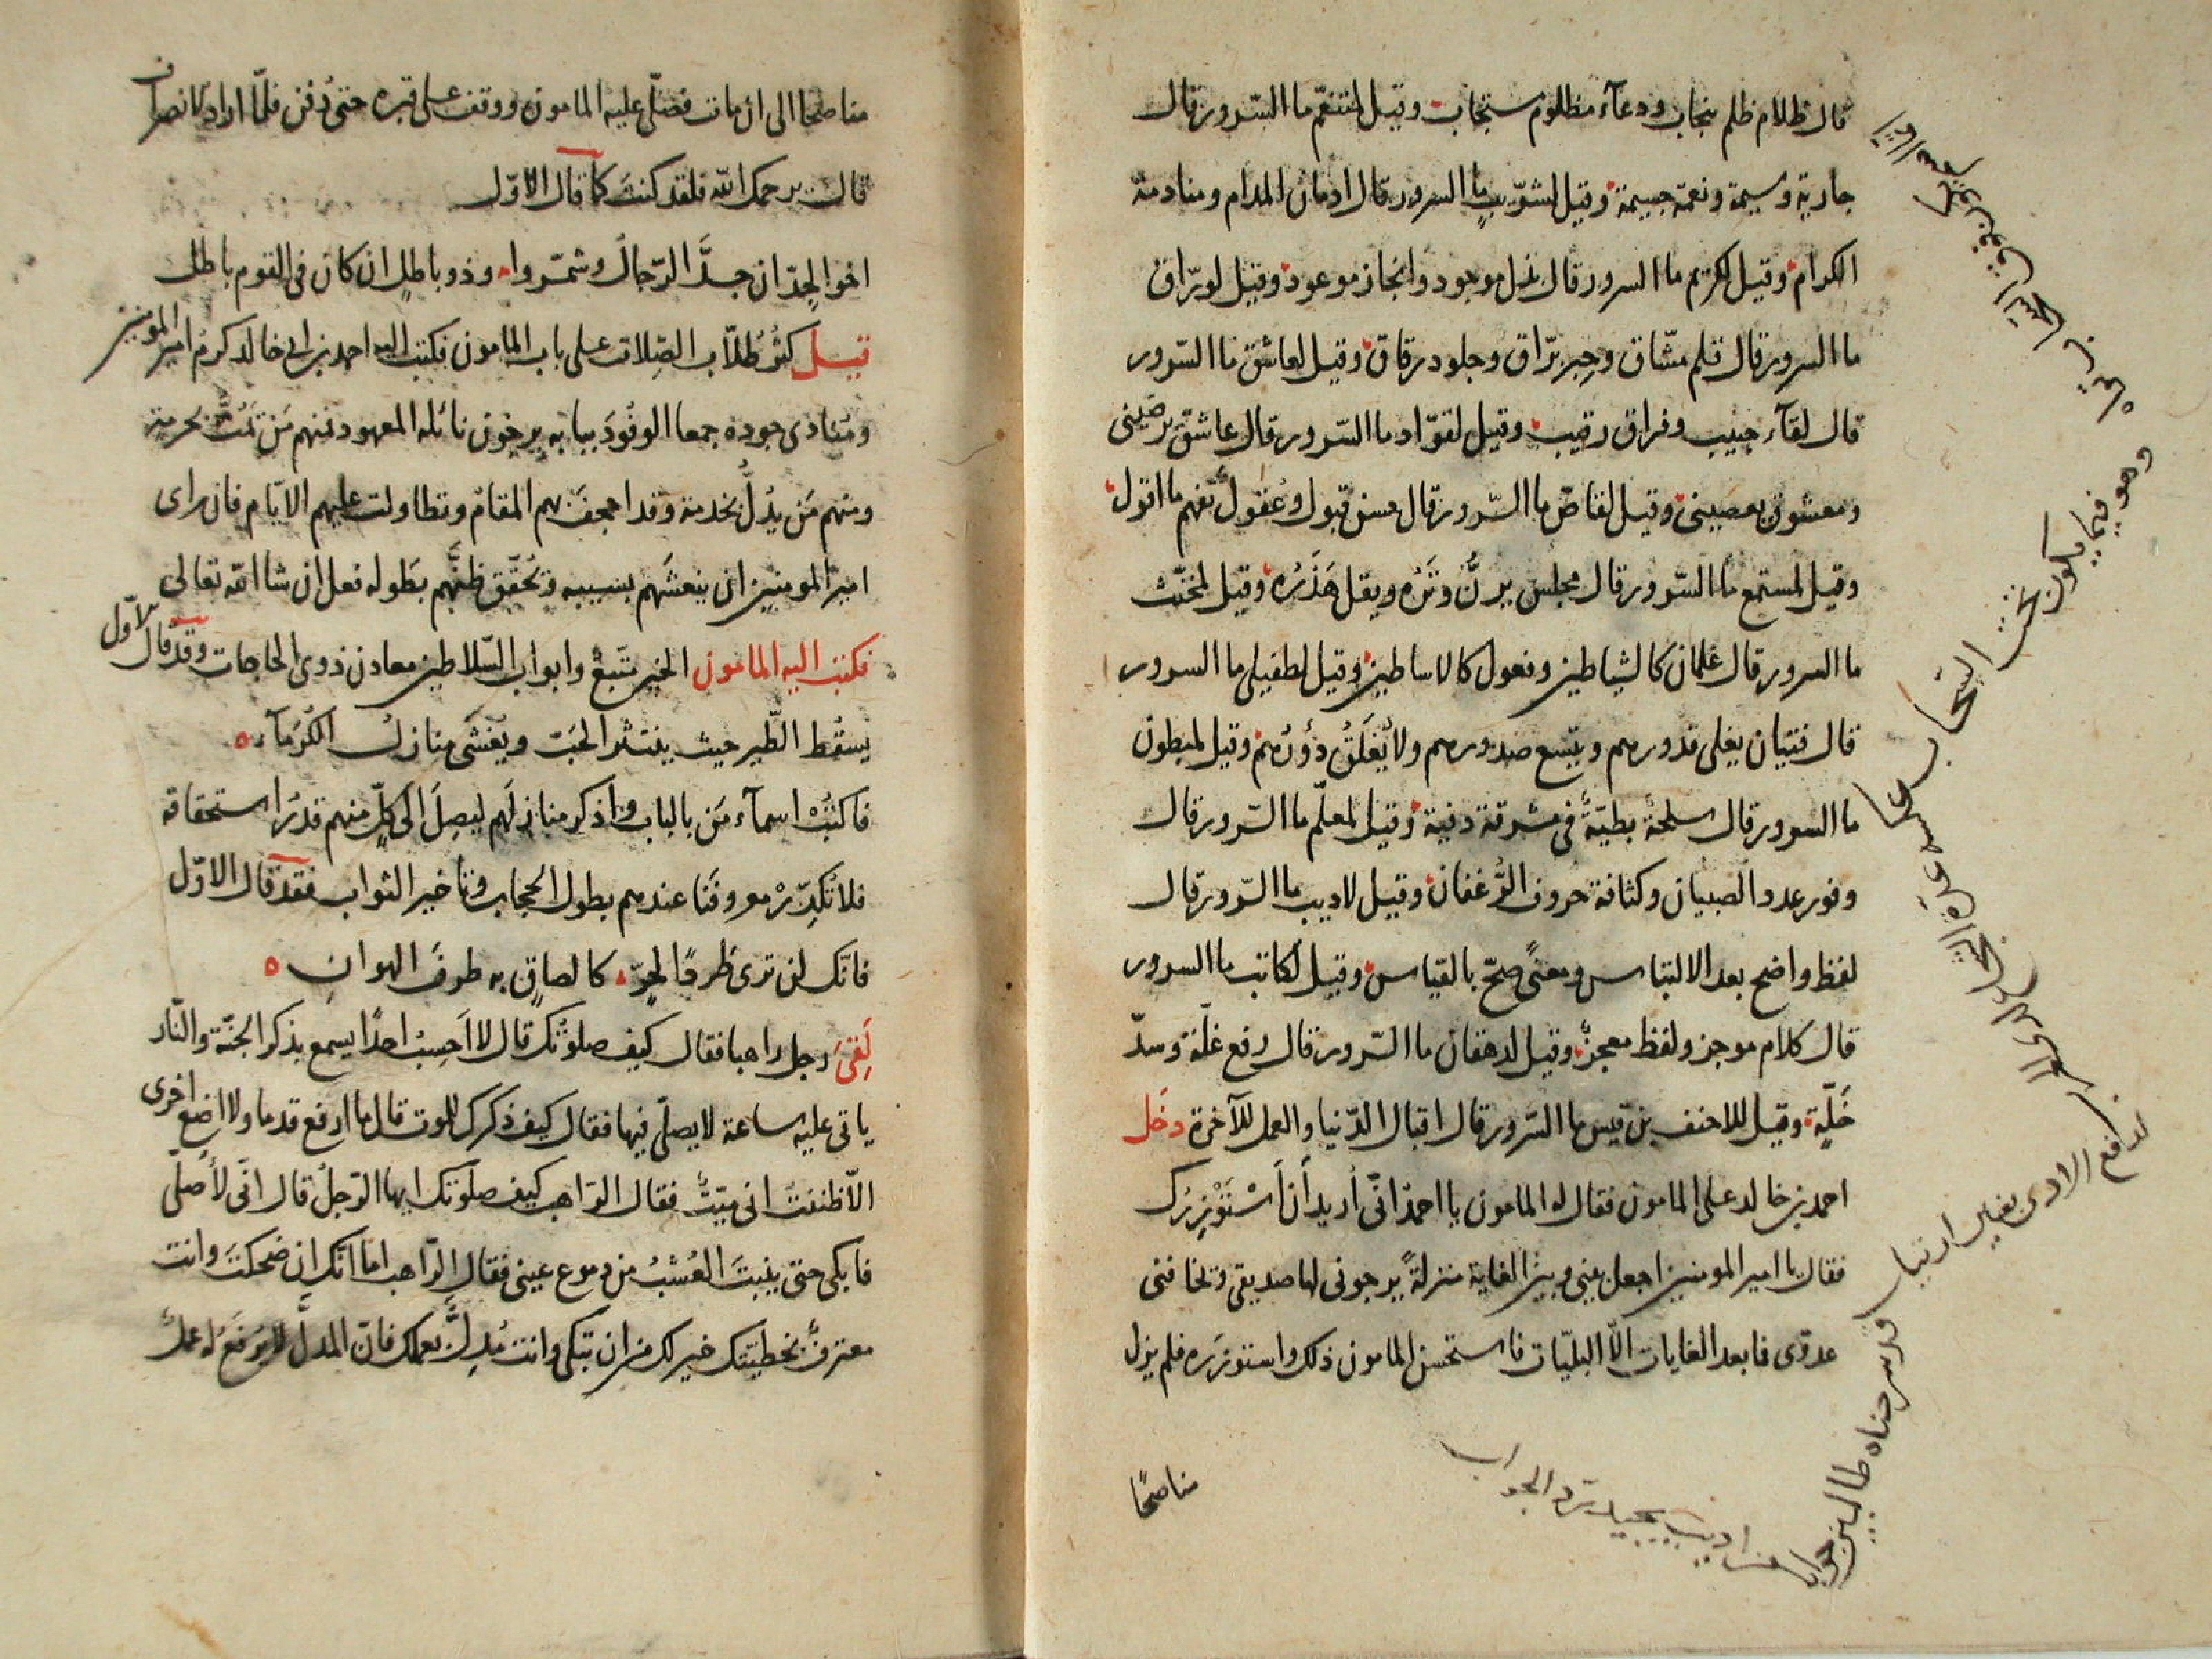 قال ظلام ظلم يجاب ودعآء مظلوم يستجاب وقيل لمتنعّم ما السّرور قال
جارية وسيمة ونعمة جسيمة وقيل لشرّيب ما السرور قال ادمان المدام ومنادمة
الكرام وقيل لكريم ما السرور قال بذل موجود وانجاز موعود وقيل لورّاق
ما السرور قال قلم مشّاق وحبر برّاق وجلود رقاق وقيل لعاشق ما السّرور
قال لقآء حبيب وفراق رقيب وقيل لقوّاد ما السّرور قال عاشق يرضيني
ومعشوق يعصيني وقيل لقاصّ ما السّرور قال حسن قبول وعقول تفهم ما اقول
وقيل لمستمع ما السّرور قال مجلس يرنّ وتره ويقل هذره وقيل لمخنّث
ما السرور قال غلمان كالشياطين وفعول كالاساطين وقيل لطفيلي ما السرور
قال فتيان يغلى قدورهم ويتسع صدورهم ولا يغلق دؤرهم وقيل لمبطون
ما السرور قال سلحة بطيّة فى مشرقة دفية وقيل لمعلّم ما السّرور قال
وفور عدد الصبيان وكثافة حروف الرّغفان وقيل لاديب ما السّرور قال
لفظ واضح بعد الالتباس ومعنًى صحّ بالقياس وقيل لكاتب ما السرور
قال كلام موجز ولفظ معجز وقيل لدهقان ما السّرور قال رفع غلّة وسدّ
خلّة وقيل للاحنف بن قيس ما السّرور قال اقبال الدّنيا والعمل للآخرة دخل
احمد بن خالد على المامون فقال له المامون يا احمد انّى أريد أن أستوزرك
فقال يا امير المومنين اجعل بيني وبين الغاية منزلةً يرجوني لها صديقي وتخافني
عدوّى فما بعد الغايات الّا البليّات فاستحسن المامون ذلك واستوزره فلم يزل
مناصحًا
وهو فيما يكون تحت السّحاب
مناصحا الى ان مات فصلّى عليه المامون ووقف على قبره حتى دُفن فلمّا اراد الانصراف
قال يرحمك الله فلقد كنت كما قال الاوّل
اخو الجدّ ان جدّ الرّجال وشمّروا وذو باطل ان كان فى القوم باطل
قيل كثر طُلّاب الصِّلات على باب المامون فكتب اليه احمد بن ابى خالد كرم امير المومنين
ومُنادى جوده جمعا الوفُود ببابه يرجون نائله المعهود فمنهم مَن يَمُتُّ بحرمة
ومنهم مَن يُدلّ بخدمة وقد اجحف بهم المقام وتطاولت عليهم الايّام فان راى
امير المومنين ان ينعشهم بسيبه وتحقّق ظنّهم بطوله فعل ان شا الله تعالى
فكتب اليه المامون الخير متّبع وابواب السّلاطين معادن ذوى الحاجات وقد قال الاوّل
يسقُط الطّير حيث ينتثر الحَبّ ويُغشى منازل الكُرمآء
فاكتُبْ اسمآء مَن بالباب واذكر منازلهم ليصل الى كلٍّ منهم قدرَ استحقاقه
فلا تُكدّرْ معروفنا عندهم بطول الحجاب وتاخير الثواب فقد قال الاوّل
فانّك لن ترى طردًا لحرّ كالصاق به طرف الهوان
لَقِىَ رجل راهبا فقال كيف صلوتك قال لا احسب احدًا يسمع بذكر الجنّة والنّار
ياتى عليه ساعة لا يصلّى فيها فقال كيف ذكرك للموت قال ما ارفع قدما ولا اضع اخرى
الّا ظننت انى ميّت فقال الراهب كيف صلوتك ايها الرّجل قال انّى لأصلّى
فابكى حتى ينبت العُشبُ من دموع عينى فقال الرّاهب اما انّك ان ضحكت وانت
معترف بخطيئتك خير لك من ان تبكى وانت مُدِلّ بعملك فانّ المدلّ لا يُرفع له عمل